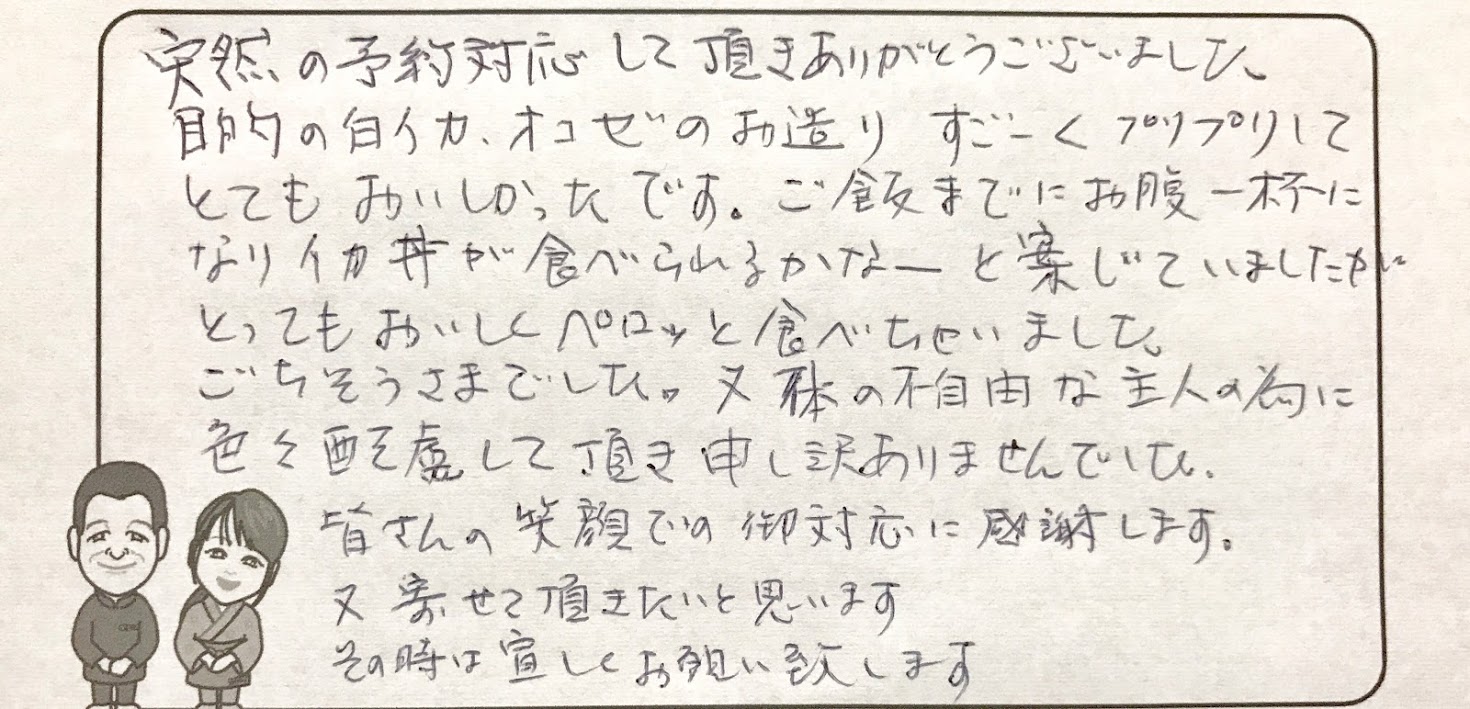 突然の予約対応して頂きありがとうございました、
目的の白イカ、オコゼのお造り すごーくプリプリして
とてもおいしかったです。ご飯までにお腹一杯に
なりイカ丼が食べられるかなーと案じていましたが
とってもおいしくペロッと食べちゃいました。
ごちそうさまでした。又体の不自由な主人の為に
色々配慮して頂き申し訳ありませんでした、
皆さんの笑顔での御対応に感謝します。
又寄せて頂きたいと思います
その時は宜しくお願い致します